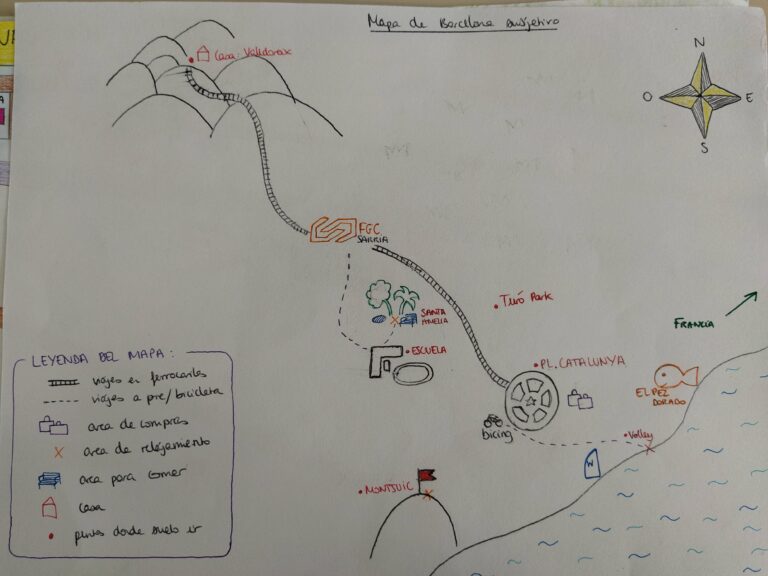 Mapa de Barcelona subjetivo
Casa: Valldoreix
N
O
E
S
FGC
SARRIA
Turó Park
SANTA
AMELIA
FRANCIA
ESCUELA
PL. CATALUNYA
EL PEZ
DORADO
bicing
Volley
W
MONTJUIC
LEYENDA DEL MAPA:
viajes en ferrocarriles
viajes a pie/bicicleta
area de compras
area de relajamiento
area para comer
casa
puntos donde suelo ir